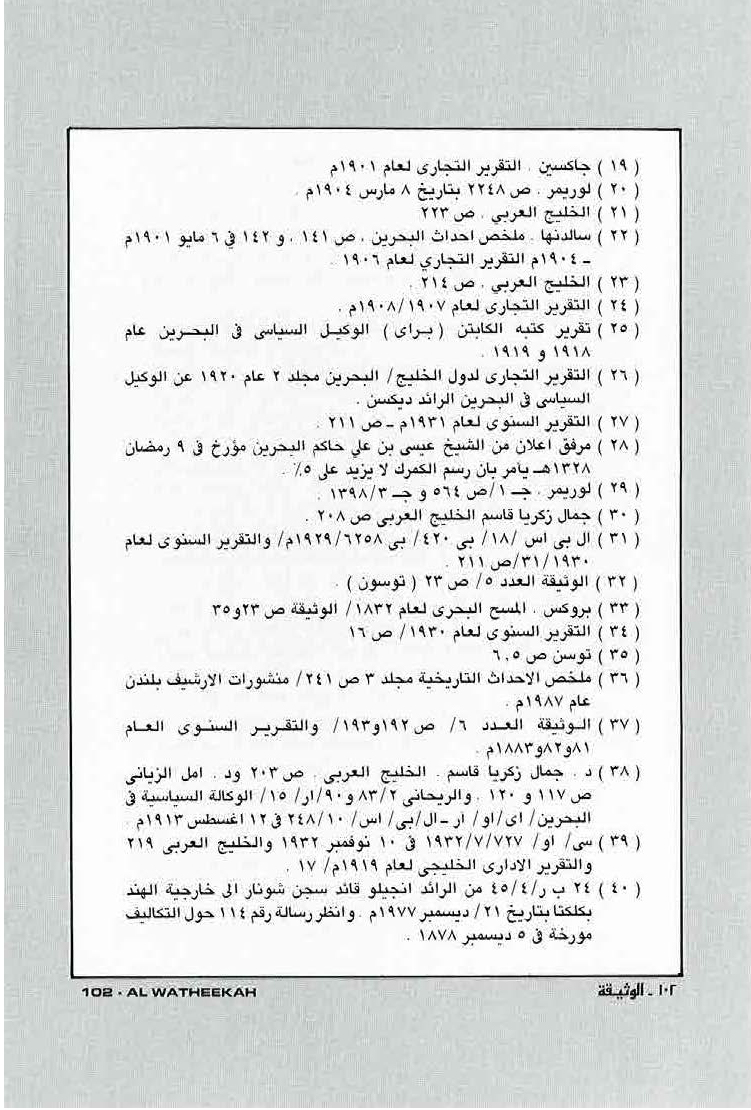 ( ١٩ ) جاكسين . التقرير التجارى لعام ١٩٠١م
( ٢٠ ) لوريمر . ص ٢٢٤٨ بتاريخ ٨ مارس ١٩٠٤م .
( ٢١ ) الخليج العربي . ص ٢٢٣
( ٢٢ ) سالدنها . ملخص احداث البحرين . ص ١٤١ . و ١٤٢ في ٦ مايو ١٩٠١م
ـ ١٩٠٤م التقرير التجاري لعام ١٩٠٦ .
( ٢٣ ) الخليج العربي . ص ٢١٤ .
( ٢٤ ) التقرير التجارى لعام ١٩٠٨/١٩٠٧م .
( ٢٥ ) تقرير كتبه الكابتن ( براى ) الوكيل السياسى في البحرين عام
١٩١٨ و ١٩١٩ .
( ٢٦ ) التقرير التجارى لدول الخليج / البحرين مجلد ٢ عام ١٩٢٠ عن الوكيل
السياسى في البحرين الرائد ديكسن .
( ٢٧ ) التقرير السنوى لعام ١٩٣١م ـ ص ٢١١ .
( ٢٨ ) مرفق اعلان من الشيخ عيسى بن علي حاكم البحرين مؤرخ في ٩ رمضان
١٣٢٨هـ يأمر بان رسم الكمرك لا يزيد على ٥٪ .
( ٢٩ ) لوريمر . جـ ١/ص ٥٦٤ و جـ ١٣٩٨/٣ .
( ٣٠ ) جمال زكريا قاسم الخليج العربى ص ٢٠٨ .
( ٣١ ) ال بى اس /١٨/ بى ٤٢٠/ بى ١٩٢٩/٦٢٥٨م/ والتقرير السنوى لعام
١٩٣٠/٣١/ص ٢١١ .
( ٣٢ ) الوثيقة العدد ٥/ ص ٢٣ ( توسون ) .
( ٣٣ ) بروكس . المسح البحرى لعام ١٨٣٢/ الوثيقة ص ٢٣و٣٥
( ٣٤ ) التقرير السنوى لعام ١٩٣٠/ ص ١٦
( ٣٥ ) توسن ص ٦,٥
( ٣٦ ) ملخص الاحداث التاريخية مجلد ٣ ص ٢٤١/ منشورات الارشيف بلندن
عام ١٩٨٧م .
( ٣٧ ) الوثيقة العدد ٦/ ص١٩٢و١٩٣/ والتقرير السنوى العام
٨١و٨٢و١٨٨٣م .
( ٣٨ ) د . جمال زكريا قاسم . الخليج العربى . ص ٢٠٣ ود . امل الزيانى
ص ١١٧ و ١٢٠ . والريحانى ٨٣/٢ و ٩٠/ار/ ١٥/ الوكالة السياسية في
البحرين/ اى/او/ ار ـ ال/بى/ اس/ ٢٤٨/١٠ في ١٢ اغسطس ١٩١٣م .
( ٣٩ ) سى/ او/ ١٩٣٢/٧/٧٢٧ في ١٠ نوفمبر ١٩٣٢ والخليج العربى ٢١٩
والتقرير الادارى الخليجى لعام ١٩١٩م/ ١٧ .
( ٤٠ ) ٢٤ ب ر/٤٥/٤ من الرائد انجيلو قائد سجن شونار الى خارجية الهند
بكلكتا بتاريخ ٢١/ ديسمبر ١٩٧٧م . وانظر رسالة رقم ١١٤ حول التكاليف
مؤرخة في ٥ ديسمبر ١٨٧٨ .
102 • AL WATHEEKAH
١٠٢ ـ الوثيقة